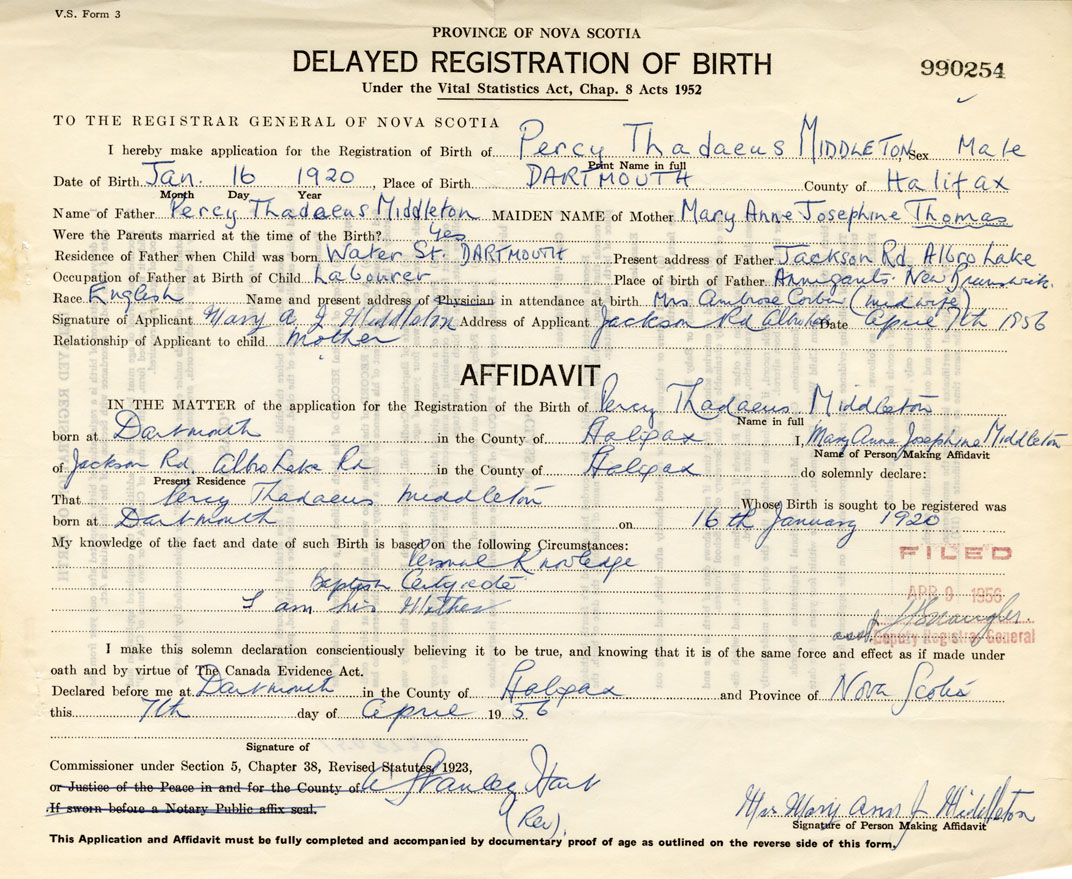 V.S. Form 3
PROVINCE OF NOVA SCOTIA
DELAYED REGISTRATION OF BIRTH
990254
Under the Vital Statistics Act, Chap. 8 Acts 1952
TO THE REGISTRAR GENERAL OF NOVA SCOTIA
I hereby make application for the Registration of Birth of Percy Thadaeus MIDDLETON Sex Male
Print Name in full
Date of Birth Jan. 16 1920, Place of Birth DARTMOUTH County of Halifax
Month Day Year
Name of Father Percy Thadaeus Middleton MAIDEN NAME of Mother Mary Anne Josephine Thomas
Were the Parents married at the time of the Birth? Yes
Residence of Father when Child was born Water St. DARTMOUTH Present address of Father Jackson Rd, Albro Lake
Occupation of Father at Birth of Child Labourer Place of birth of Father New Brunswick.
Race English Name and present address of Physician in attendance at birth Mrs Ambrose (midwife)
Signature of Applicant Mary A J Middleton Address of Applicant Jackson Rd Albro Lake Date April 7th 1956
Relationship of Applicant to child mother
AFFIDAVIT
IN THE MATTER of the application for the Registration of the Birth of Percy Thadaeus Middleton
Name in full
born at Dartmouth in the County of Halifax I, Mary Anne Josephine Middleton
Name of Person Making Affidavit
of Jackson Rd, Albro Lake Rd in the County of Halifax do solemnly declare:
Present Residence
That Percy Thadaeus Middleton Whose Birth is sought to be registered was
born at Dartmouth on 16th January 1920
My knowledge of the fact and date of such Birth is based on the following Circumstances:
Personal Knowledge
FILED
Baptism Certificate
APR 9 1956
I am his Mother
Deputy Registrar General
I make this solemn declaration conscientiously believing it to be true, and knowing that it is of the same force and effect as if made under
oath and by virtue of The Canada Evidence Act.
Declared before me at Dartmouth in the County of Halifax and Province of Nova Scotia
this 7th day of April 1956
Signature of
Commissioner under Section 5, Chapter 38, Revised Statutes, 1923,
or Justice of the Peace in and for the County of A Stanley Hart
If sworn before a Notary Public affix seal.
(Rev).
Mrs Mary Ann J Middleton
Signature of Person Making Affidavit
This Application and Affidavit must be fully completed and accompanied by documentary proof of age as outlined on the reverse side of this form.